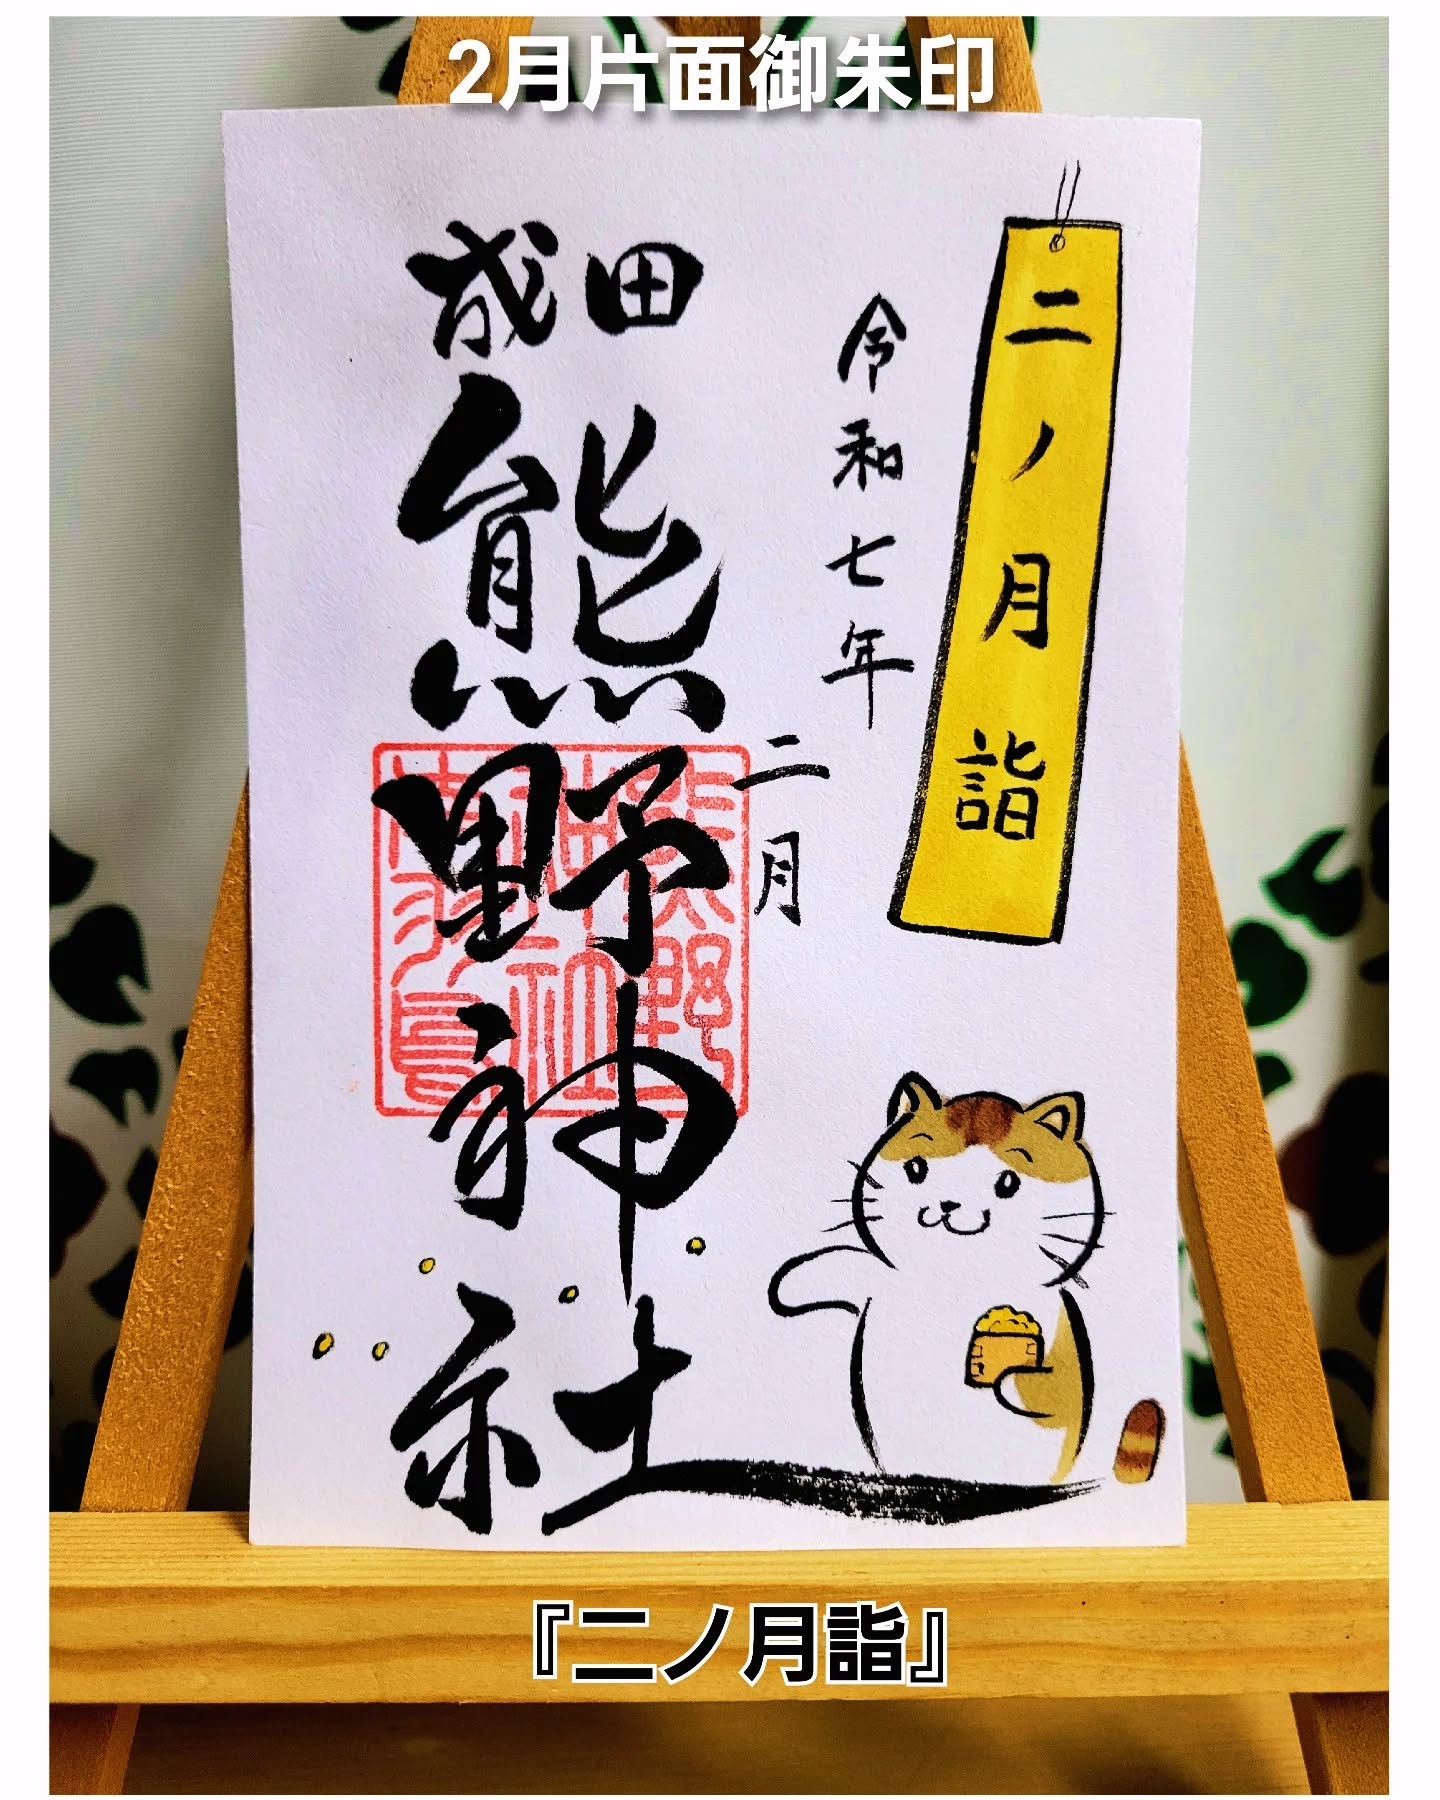 2月片面御朱印
二ノ月詣
令和七年
二月
成田
熊野神社
『二ノ月詣』